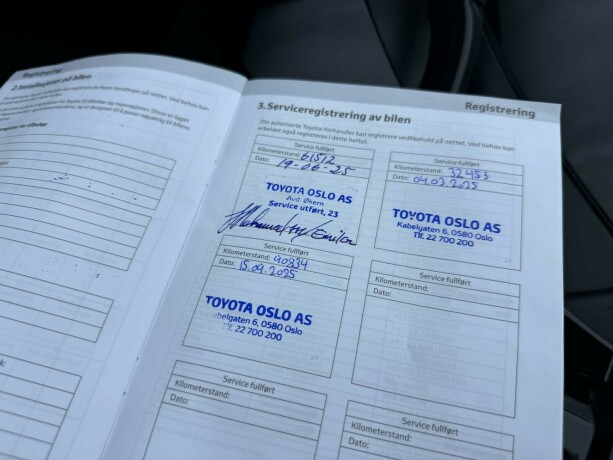 Registrering
2. Installasjoner på bilen
Registrering
3. Serviceregistrering av bilen
Din autoriserte Toyota-forhandler kan registrere vedlikehold på nettet. Ved behov kan
arbeidet også registreres i dette heftet.
Service fullført
Kilometerstand: 61512
Dato: 19-06-25
TOYOTA OSLO AS
Avd. Økern
Service utført, 23
Service fullført
Kilometerstand: 32453
Dato: 04.03.2025
TOYOTA OSLO AS
Kabelgaten 6, 0580 Oslo
Tlf. 22 700 200
Service fullført
Kilometerstand: 90834
Dato: 15.09.2025
TOYOTA OSLO AS
Kabelgaten 6, 0580 Oslo
Tlf. 22 700 200
Service fullført
Kilometerstand:
Dato:
Service fullført
Kilometerstand:
Dato:
Service fullført
Kilometerstand:
Dato: